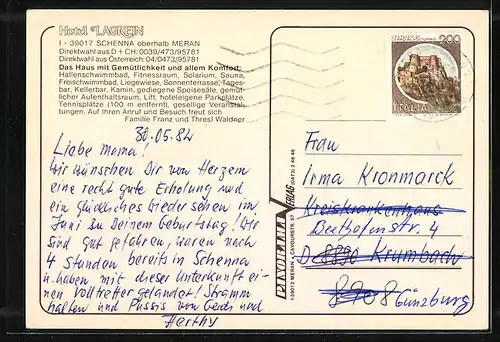 Hotel LAGREIN
I - 39017 SCHENNA oberhalb MERAN
Direktwahl aus D + CH: 0039/473/95781
Direktwahl aus Österreich: 04/0473/95781
Das Haus mit Gemütlichkeit und allem Komfort:
Hallenschwimmbad, Fitnessraum, Solarium, Sauna,
Freischwimmbad, Liegewiese, Sonnenterrasse, Tages-
bar, Kellerbar, Kamin, gediegene Speisesäle, gemüt-
licher Aufenthaltsraum, Lift, hoteleigene Parkplätze,
Tennisplätze (100 m entfernt), gesellige Veranstal-
tungen. Auf Ihren Anruf und Besuch freut sich
Familie Franz und Thresl Waldner
30.05.82
Liebe Mama!
Wir wünschen Dir von Herzen
eine recht gute Erholung und
ein glückliches Wiedersehen im
Juni zu Deinem Geburtstag! Wir
sind gut gefahren, waren nach
4 Stunden bereits in Schenna
u. haben mit dieser Unterkunft ei-
nen Volltreffer gelandet! Stramm
halten und Pussis von Gerdi und
Herthy
PANORAMA VERLAG
I-39012 MERAN - CAVOURSTR. 57 (0473) 2 46 46
200
ITALIA
Frau
Irma Kronmarck
Kreiskrankenhaus
Beethofenstr. 4
D 8890 Krumbach
8908 Günzburg